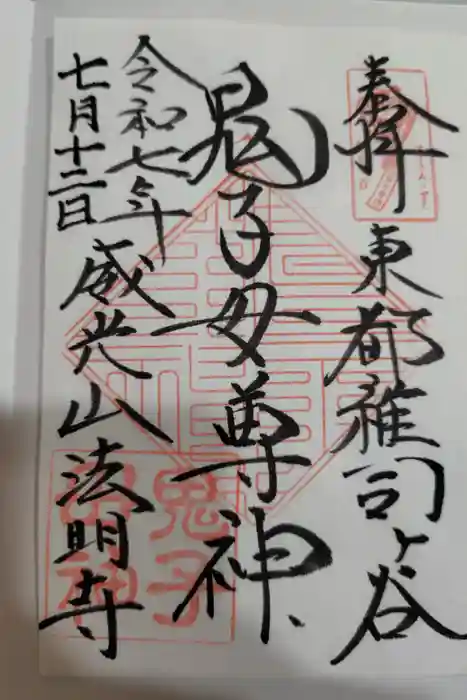 奉拝
東都雑司ヶ谷
鬼子母尊神
令和七年
七月十二日
威光山法明寺